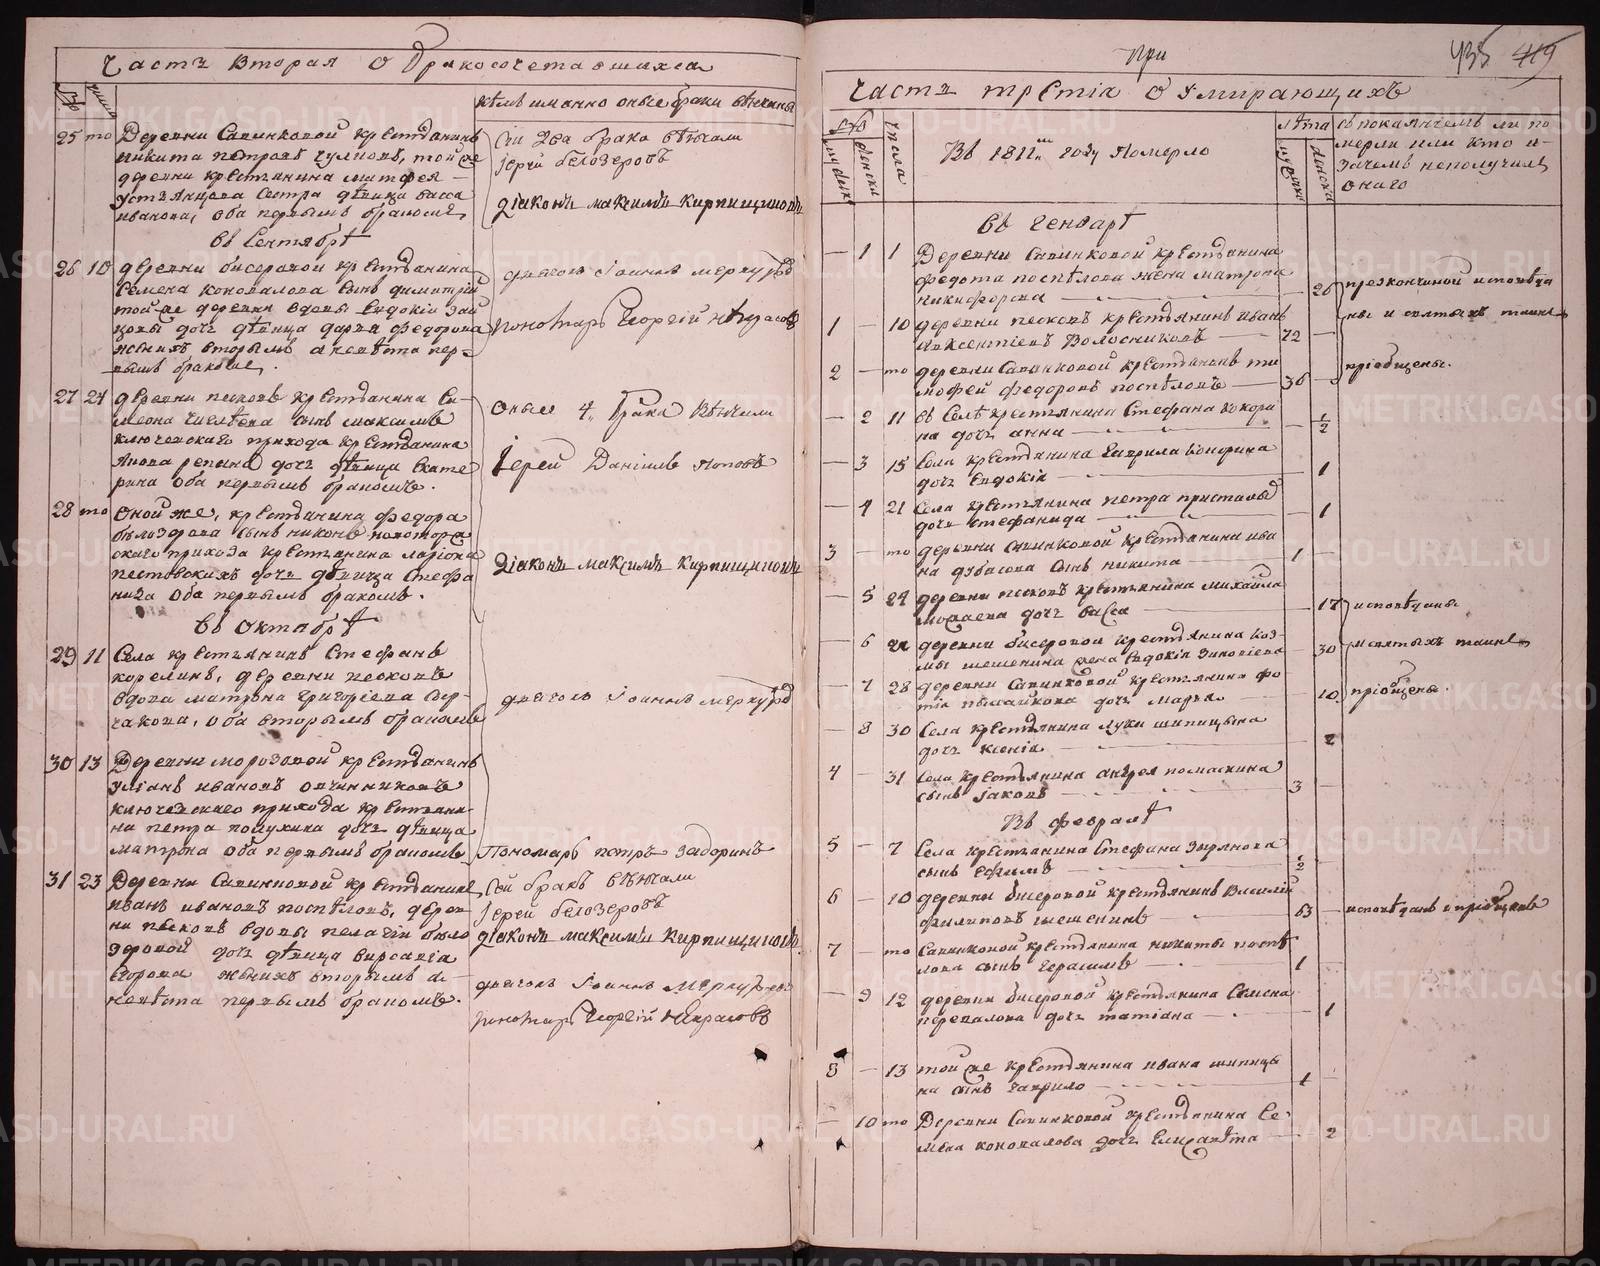 часть вторая о бракосочетавшихся
кѣмъ именно оные браки вѣнчаны
25 то Деревни Савинковой крестьянинъ
никита петровъ, той же
деревни крестьянина матфея
устьянцова сестра дѣвица васса
иванова, оба первымъ бракомъ
сіи два брака вѣнчали
іерей белозеровъ
діаконъ максимъ кирпищиковъ
въ Сентябрѣ
26 10 деревни бисеровой крестьянина
Семена коновалова сынъ димитрій
той же деревни вдовы Евдокіи
дочь дѣвица дарья федорова
женихъ вторымъ а невѣста пер-
вымъ бракомъ.
дьячокъ Іоаннъ меркурьевъ
пономарь Георгій некрасовъ
27 24 деревни песковъ крестьянина Си-
меона сынъ максимъ
ключевскаго прихода крестьянина
якова репина дочь дѣвица Екате
рина оба первымъ бракомъ.
оные 4 брака Вѣнчали
Іерей Даніилъ Поповъ
28 то оной же, крестьянина федора
сынъ никонъ
скаго прихода крестьянина ларіона
пестовскихъ дочь дѣвица Стефа
нида оба первымъ бракомъ.
діаконъ максимъ кирпищиковъ
въ Октябрѣ
29 11 Села крестьянинъ Стефанъ
корелинъ, деревни песковъ
вдова матрона григоріева
оба вторымъ бракомъ
дьячокъ Іоаннъ меркурьевъ
30 13 Деревни морозовой крестьянинъ
уліанъ ивановъ овчинниковъ
ключевскаго прихода крестьяни-
на петра полухина дочь дѣвица
матрона оба первымъ бракомъ
Пономарь петръ Задоринъ
31 23 Деревни Савинковой крестьянинъ
иванъ ивановъ поспѣловъ, дерев
ни песковъ вдовы пелагіи бѣло
зеровой дочь дѣвица вирсавія
Егорова женихъ вторымъ а-
невѣста первымъ бракомъ.
Сей бракъ вѣнчали
іерей белозеровъ
діаконъ максимъ кирпищиковъ
дьячокъ Іоаннъ меркурьевъ
пономарь Георгій Некрасовъ
при
435 419
часть третія о умирающихъ
мужеска женска числа
Въ 1811 году померло
лѣта
мужеска женска
съ покаяніемъ ли по
мерли или кто и
зачемъ неполучилъ
онаго
въ Генварѣ
— 1 1 Деревни Савинковой крестьянина
федота поспѣлова жена матрона
никифорова — 26
предкончиной исповѣда
ны и святыхъ таинъ
1 — 10 деревни песковъ крестьянинъ иванъ
авксентіевъ Волосниковъ 72 —
2 — то деревни Савинковой крестьянинъ ти
мофей федоровъ поспѣловъ 36 —
пріобщены.
— 2 11 въ Селѣ крестьянина Стефана кокори
на дочь анна — 1/2
— 3 15 Села крестьянина Гаврила
дочь Евдокія — 1
— 4 21 Села крестьянина петра
дочь стефанида — 1
3 — то деревни савинковой крестьянина ива
на дубасова сынъ никита 1 —
— 5 24 деревни песковъ крестьянина михайла
дочь васса — 17
исповѣданы
— 6 деревни бисеровой крестьянина коз-
мы шешенина жена Евдокія зиновіева — 30
и святыхъ таинъ
— 7 28 деревни Савинковой крестьянина фо
тіа дочь марѳа — 10
пріобщены.
— 8 30 Села крестьянина луки шипицына
дочь ксенія — 2
4 — 31 Села крестьянина андрея
сынъ іаковъ 3 —
Въ февралѣ
5 — 7 Села крестьянина Стефана зырянова
сынъ Ефимъ 1/2
6 — 10 деревни бисеровой крестьянинъ Василій
филиповъ шешенинъ 63 —
исповѣданъ и пріобщенъ
7 — то Савинковой крестьянина никиты поспѣ
лова сынъ герасимъ 1 —
— 9 12 деревни бисеровой крестьянина Семена
перевалова дочь татіана — 1
8 — 13 той же крестьянина ивана шипицы
на сынъ гаврило 1 —
— 10 то Деревни Савинковой крестьянина Се-
мена коновалова дочь Елисавѣта — 2
METRIKI.GASO-URAL.RU